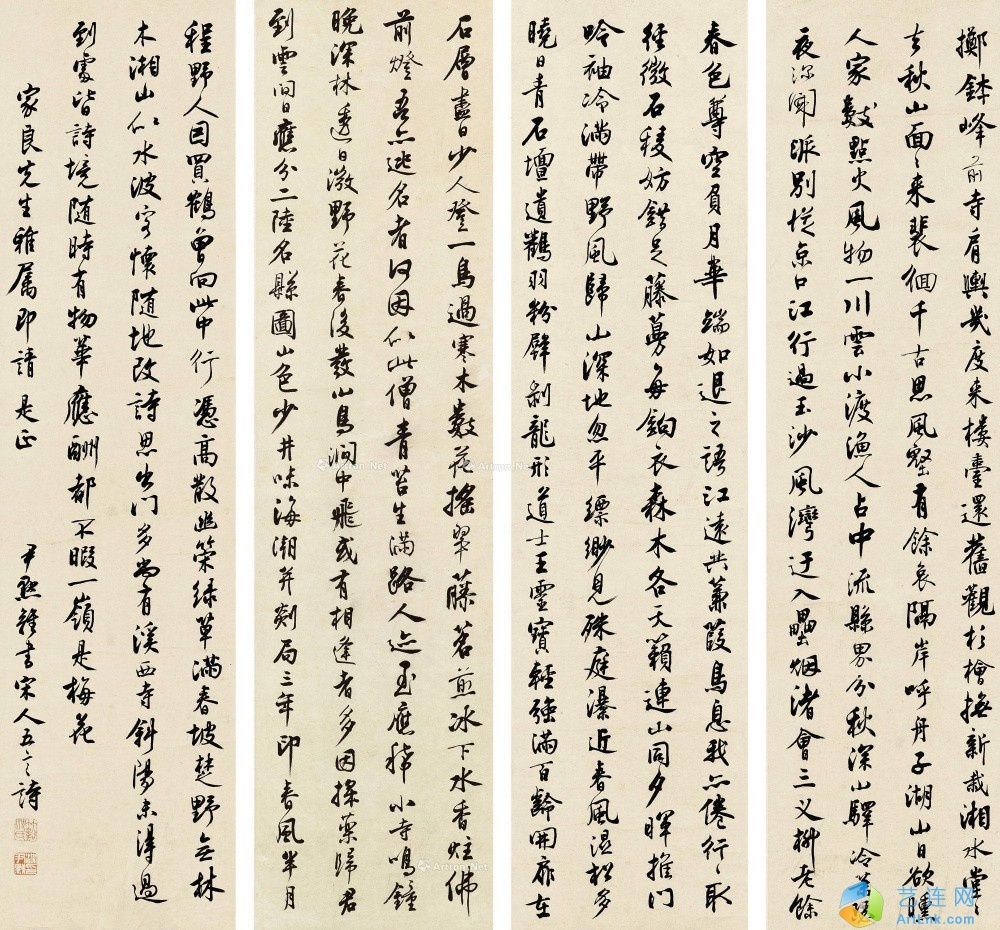 擲鉢峰前寺肩輿幾度來樓臺還舊觀杉檜撫新栽湘水堂〻
去秋山面〻來裴徊千古思風壑有餘哀隔岸呼舟子湖山日欲曛
人家數點火風物一川雲小渡漁人占中流縣界分秋深山驛冷
夜深聞派別從京口江行過玉沙風灣迂入罍烟渚會三义柳老餘
春色尊空負月華端如退之語江遠此蒹葭鳥息我亦倦行〻取
徑微石稜妨錯足藤蔓每鉤衣森木各天籟連山同夕暉推門
吟袖冷滿帶野風歸山深地忽平縹緲見殊庭瀑近春風濕松多
曉日青石壇遺鶴羽粉壁剝龍形道士王靈寶輕強滿百齡開扉在
石層盡日少人登一鳥過寒木數花搖翠藤茗煎冰下水香炷佛
前燈吾亦逃名者何因似此僧青苔生滿路人迹至應稀小寺鳴鐘
晚深林透日微野花春後發山鳥澗中飛或有相逢者多因採藥歸君
到雲間日應分二陸名縣圖山色少井味海潮并剡局三年印春風半月
程野人因買鶴曾向此中行憑高散幽策綠草滿春坡楚野無林
木湘山似水波客懷隨地改詩思出門多尚有溪西寺斜陽未得過
到處皆詩境隨時有物華應酬都不暇一嶺是梅花
家良先生雅屬即請是正
尹默雜書宋人五言詩
艺连网
ArtLnk.com